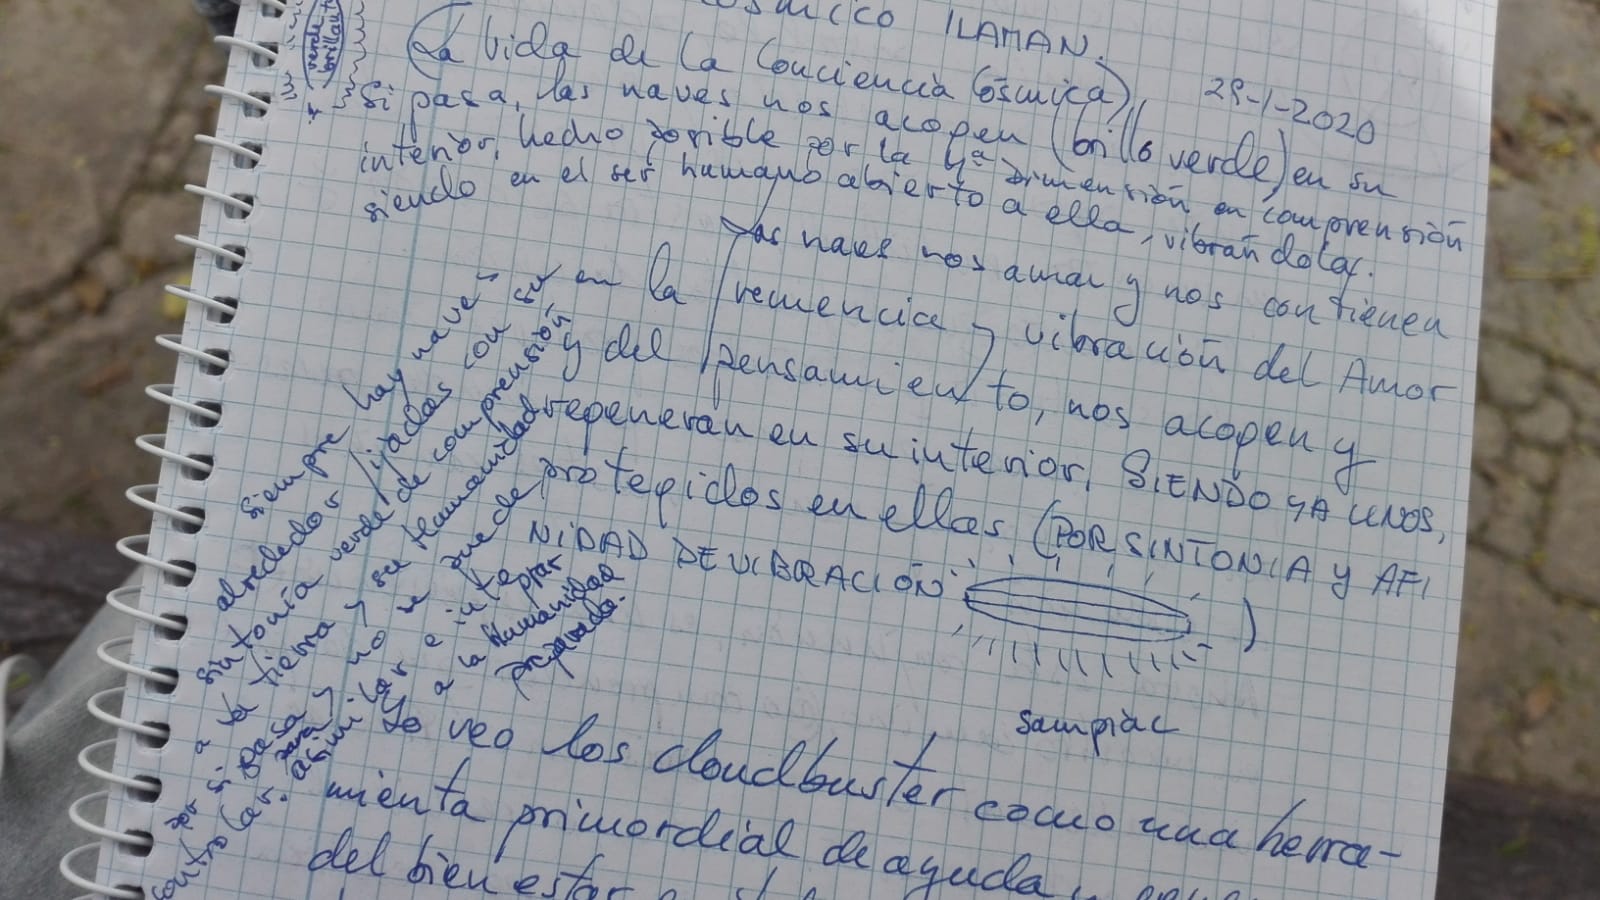 verde
brillante
ósmico ILAMAN.
(La Vida de la Conciencia Cósmica)
29-1-2020
Si pasa, las naves nos acogen (brillo verde) en su
interior, hecho posible por la 4ª Dimensión en comprensión
siendo en el ser humano abierto a ella, vibrándola.
Las naves nos aman y nos contienen
en la frecuencia y vibración del Amor
y del pensamiento, nos acogen y
regeneran en su interior, SIENDO YA UNOS,
protegidos en ellas (POR SINTONIA Y AFI
NIDAD DE VIBRACIÓN )
sampiac
siempre hay naves
alrededor fijadas con su
sintonía verde de comprensión
a la tierra y su humanidad
por si pasa y no se puede
controlar. para asimilar e integrar
a la Humanidad
preparada.
Yo veo los cloudbuster como una herra-
mienta primordial de ayuda y
del bien estar